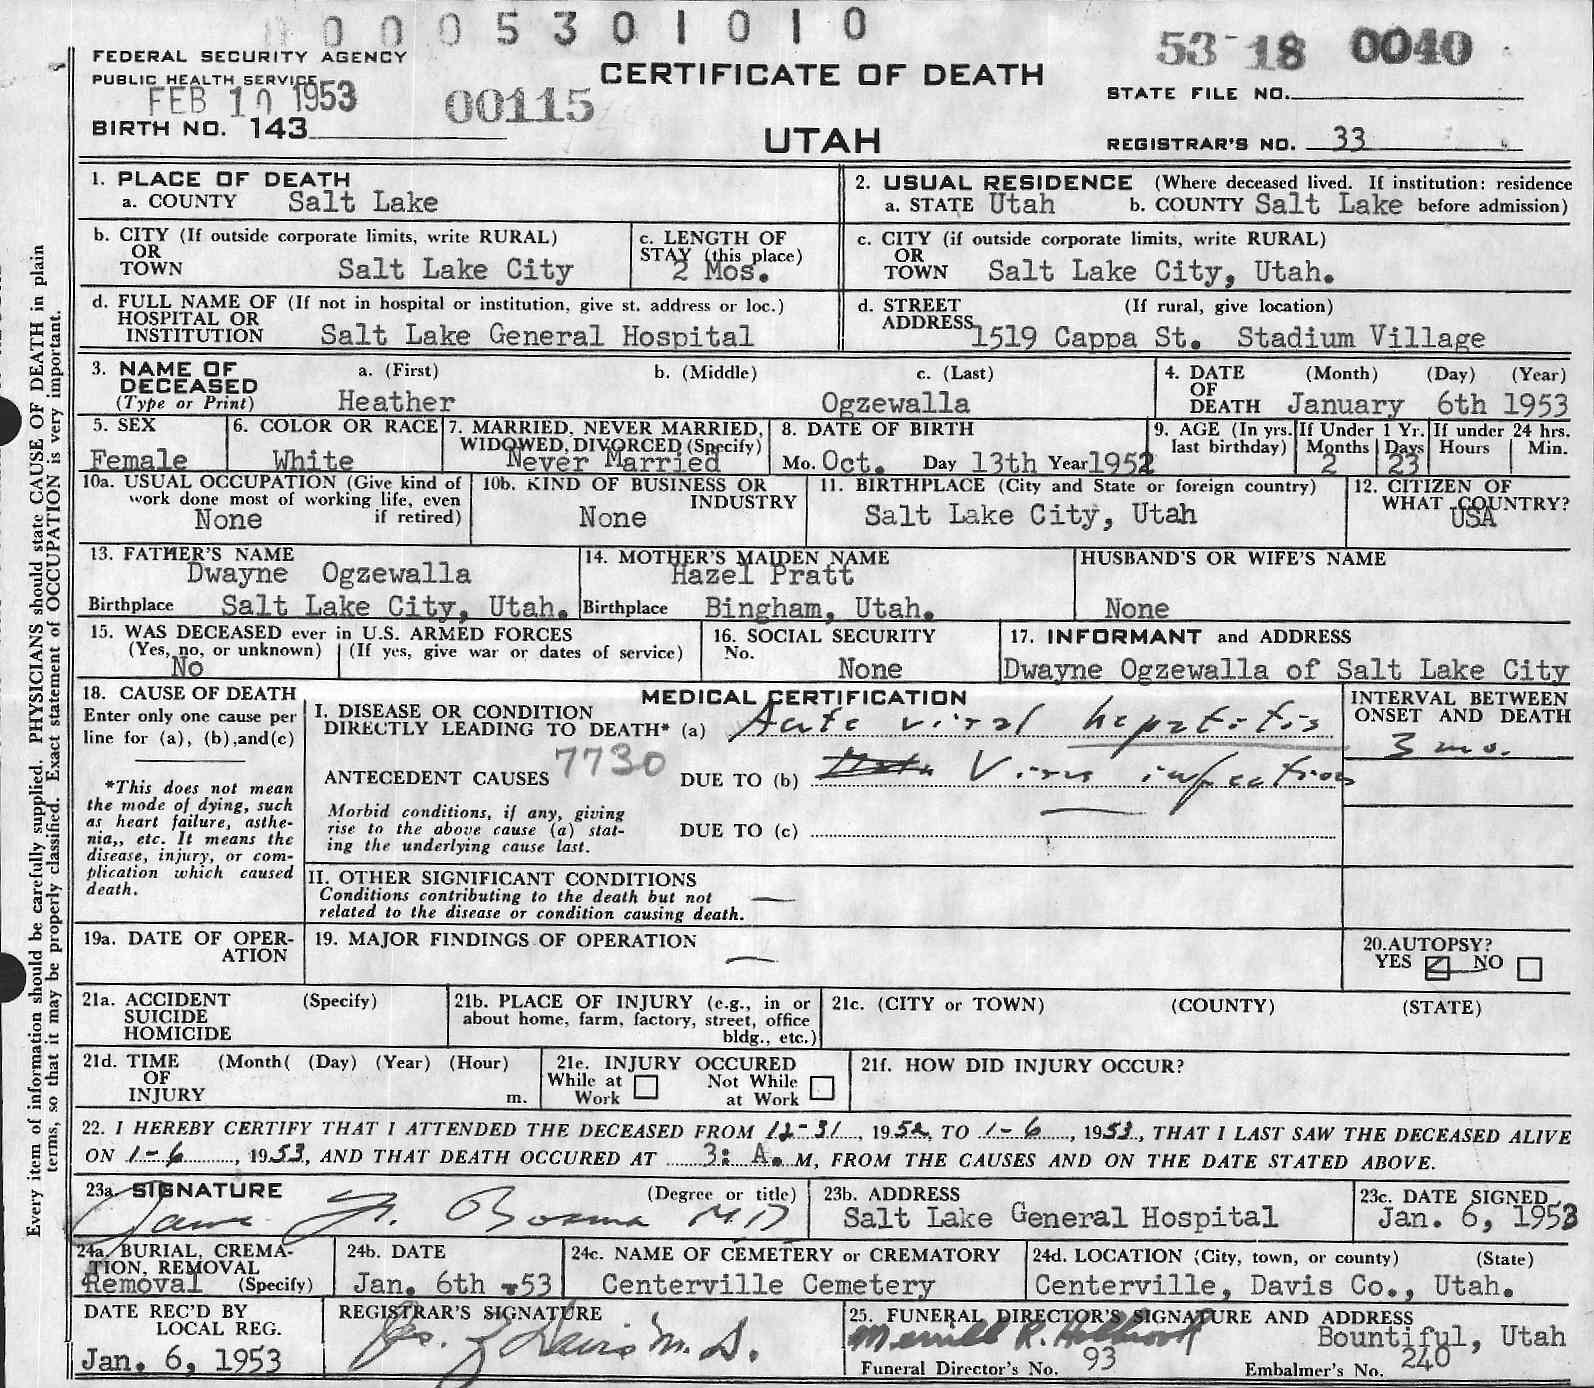 0 0 0 5 3 0 1 0 1 0
53-18 0040
FEDERAL SECURITY AGENCY
PUBLIC HEALTH SERVICE
FEB 10 1953
00115
CERTIFICATE OF DEATH
STATE FILE NO.
BIRTH NO. 143
UTAH
REGISTRAR'S NO. 33
Every item of information should be carefully supplied. PHYSICIANS should state CAUSE OF DEATH in plain
terms, so that it may be properly classified. Exact statement of OCCUPATION is very important.
1. PLACE OF DEATH
a. COUNTY Salt Lake
2. USUAL RESIDENCE (Where deceased lived. If institution: residence
a. STATE Utah b. COUNTY Salt Lake before admission)
b. CITY (If outside corporate limits, write RURAL)
OR
TOWN Salt Lake City
c. LENGTH OF
STAY (this place)
2 Mos.
c. CITY (if outside corporate limits, write RURAL)
OR
TOWN Salt Lake City, Utah.
d. FULL NAME OF (If not in hospital or institution, give st. address or loc.)
HOSPITAL OR
INSTITUTION Salt Lake General Hospital
d. STREET (If rural, give location)
ADDRESS 1519 Cappa St. Stadium Village
3. NAME OF a. (First) b. (Middle) c. (Last)
DECEASED
(Type or Print) Heather Ogzewalla
4. DATE (Month) (Day) (Year)
OF
DEATH January 6th 1953
5. SEX
Female
6. COLOR OR RACE
White
7. MARRIED, NEVER MARRIED,
WIDOWED, DIVORCED (Specify)
Never Married
8. DATE OF BIRTH
Mo. Oct. Day 13th Year 1952
9. AGE (In yrs.
last birthday)
If Under 1 Yr.
Months Days
2 23
If under 24 hrs.
Hours Min.
10a. USUAL OCCUPATION (Give kind of
work done most of working life, even
None if retired)
10b. KIND OF BUSINESS OR
INDUSTRY
None
11. BIRTHPLACE (City and State or foreign country)
Salt Lake City, Utah
12. CITIZEN OF
WHAT COUNTRY?
USA
13. FATHER'S NAME
Dwayne Ogzewalla
Birthplace Salt Lake City, Utah.
14. MOTHER'S MAIDEN NAME
Hazel Pratt
Birthplace Bingham, Utah.
HUSBAND'S OR WIFE'S NAME
None
15. WAS DECEASED ever in U.S. ARMED FORCES
(Yes, no, or unknown) (If yes, give war or dates of service)
No
16. SOCIAL SECURITY
No.
None
17. INFORMANT and ADDRESS
Dwayne Ogzewalla of Salt Lake City
18. CAUSE OF DEATH
Enter only one cause per
line for (a), (b),and(c)
*This does not mean
the mode of dying, such
as heart failure, asthe-
nia,, etc. It means the
disease, injury, or com-
plication which caused
death.
MEDICAL CERTIFICATION
I. DISEASE OR CONDITION
DIRECTLY LEADING TO DEATH* (a) Acute viral hepatitis
INTERVAL BETWEEN
ONSET AND DEATH
3 mo.
ANTECEDENT CAUSES 7730 DUE TO (b) Virus infection
Morbid conditions, if any, giving
rise to the above cause (a) stat-
ing the underlying cause last.
DUE TO (c)
II. OTHER SIGNIFICANT CONDITIONS
Conditions contributing to the death but not
related to the disease or condition causing death.
19a. DATE OF OPER-
ATION
19. MAJOR FINDINGS OF OPERATION
20. AUTOPSY?
YES NO
21a. ACCIDENT (Specify)
SUICIDE
HOMICIDE
21b. PLACE OF INJURY (e.g., in or
about home, farm, factory, street, office
bldg., etc.)
21c. (CITY or TOWN) (COUNTY) (STATE)
21d. TIME (Month( (Day) (Year) (Hour)
OF
INJURY m.
21e. INJURY OCCURED
While at Not While
Work at Work
21f. HOW DID INJURY OCCUR?
22. I HEREBY CERTIFY THAT I ATTENDED THE DECEASED FROM 12-31, 1952, TO 1-6, 1953, THAT I LAST SAW THE DECEASED ALIVE
ON 1-6, 1953, AND THAT DEATH OCCURED AT 3: A. M, FROM THE CAUSES AND ON THE DATE STATED ABOVE.
23a. SIGNATURE (Degree or title)
M.D
23b. ADDRESS
Salt Lake General Hospital
23c. DATE SIGNED
Jan. 6, 1953
24a. BURIAL, CREMA-
TION, REMOVAL
Removal (Specify)
24b. DATE
Jan. 6th -53
24c. NAME OF CEMETERY or CREMATORY
Centerville Cemetery
24d. LOCATION (City, town, or county) (State)
Centerville, Davis Co., Utah.
DATE REC'D BY
LOCAL REG.
Jan. 6, 1953
REGISTRAR'S SIGNATURE
M.D.
25. FUNERAL DIRECTOR'S SIGNATURE AND ADDRESS
Merrill R. Holbrook Bountiful, Utah
Funeral Director's No. 93 Embalmer's No. 240